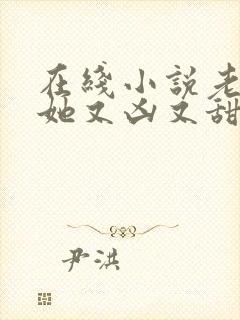 在綫小説老
她又凶又甜
尹洪